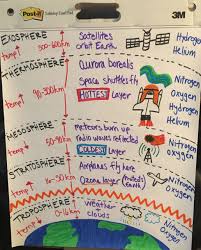 Post-it
3M
EXOSPHERE
500-600km
Satellites
orbit Earth
Hydrogen
Helium
THERMOSPHERE
Temp↑
90-300km
Aurora borealis
Space shuttles fly
HOTTEST Layer
Nitrogen
Oxygen
Hydrogen
Helium
MESOSPHERE
Temp↓
50-90km
Meteors burn up
radio waves reflected
COLDEST Layer
Nitrogen
oxygen
STRATOSPHERE
Temp↑
Airplanes fly here
Ozone layer
Nitrogen
Oxygen
TROPOSPHERE
Temp↓
0-16km
weather
clouds
Nitrogen
Oxygen